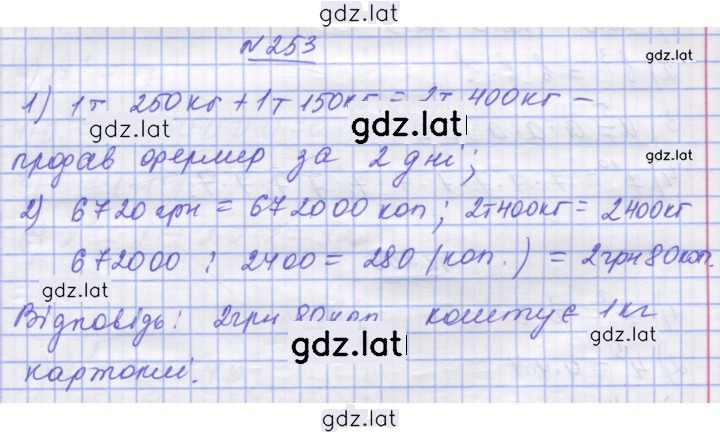 gdz.lat
№253
gdz.lat
1) 1т 250кг + 1т 150кг = 2т 400кг –
gdz.lat
gdz.lat
продав фермер за 2 дні;
gdz.lat
2) 6720 грн = 672000 коп; 2т400кг = 2400кг
672000 : 2400 = 280 (коп.) = 2грн80коп.
gdz.lat
gdz.lat
Відповідь: 2грн 80коп коштує 1кг
gdz.lat
gdz.lat
картоплі.
gdz.lat